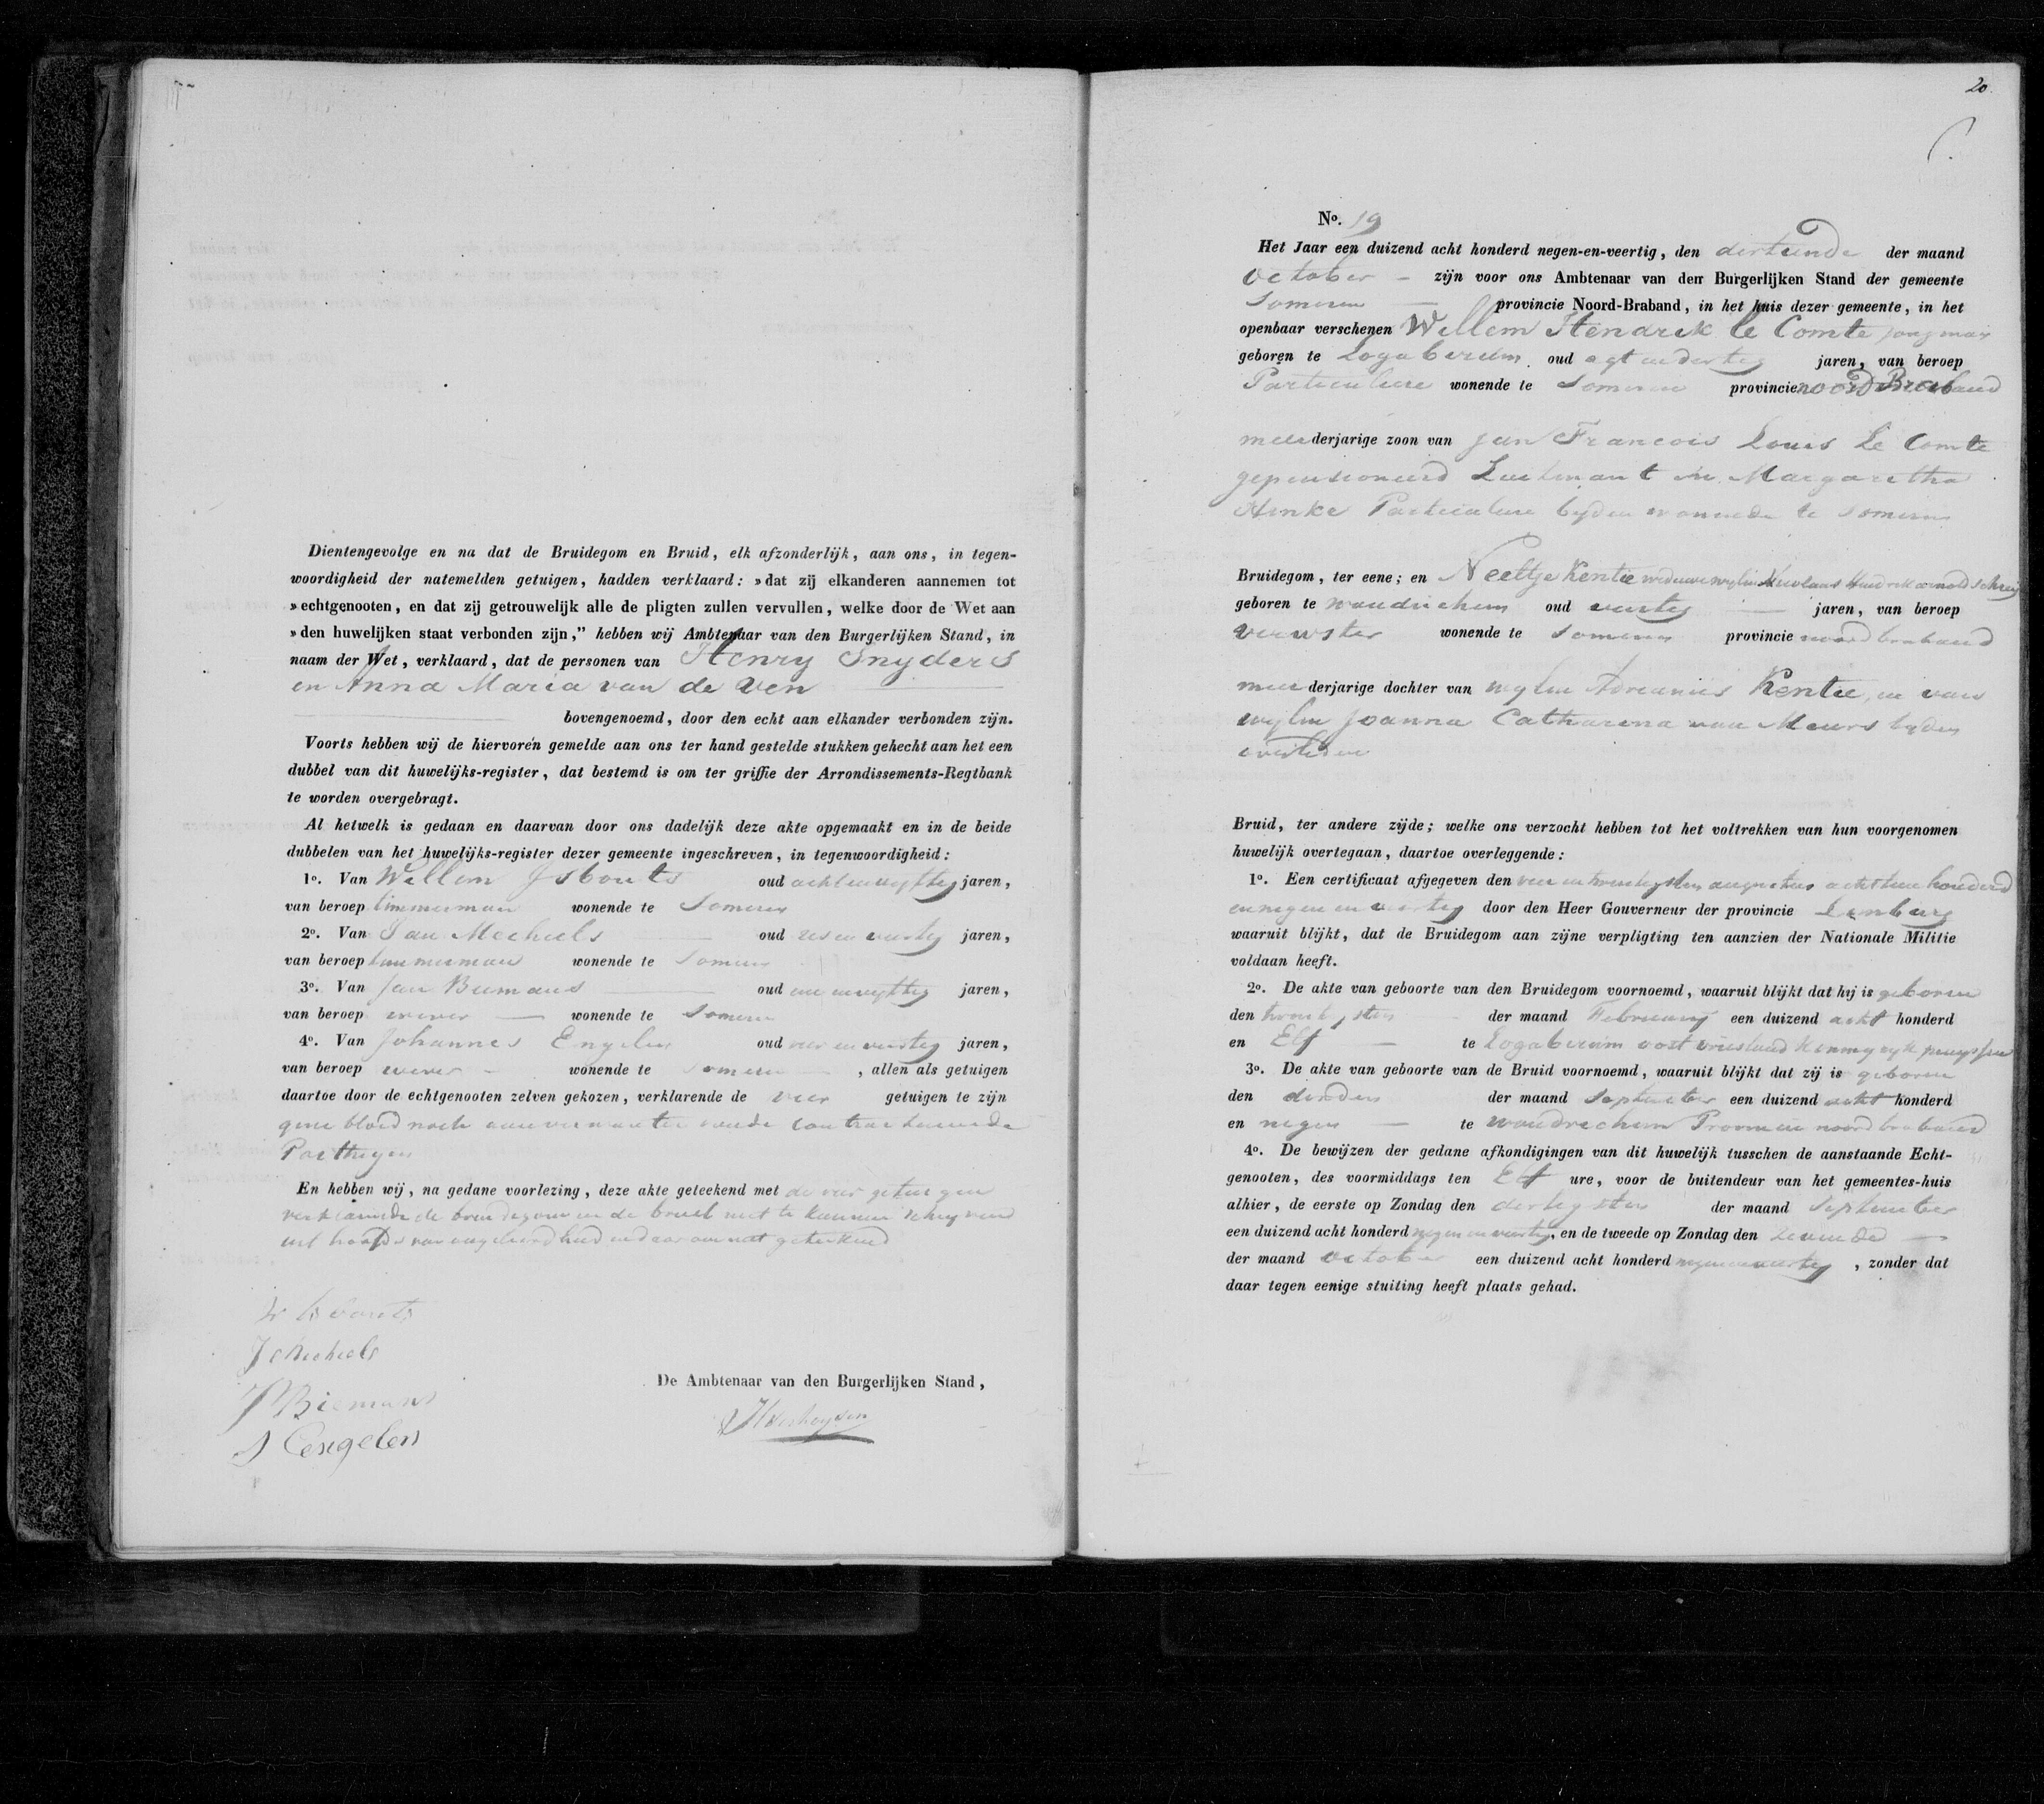 Dientengevolge en na dat de Bruidegom en Bruid, elk afzonderlijk, aan ons, in tegen-
woordigheid der natemelden getuigen, hadden verklaard: »dat zij elkanderen aannemen tot
»echtgenooten, en dat zij getrouwelijk alle de pligten zullen vervullen, welke door de Wet aan
»den huwelijken staat verbonden zijn,” hebben wij Ambtenaar van den Burgerlijken Stand, in
naam der Wet, verklaard, dat de personen van Henry Snyders
en Anna Maria van de Ven
bovengenoemd, door den echt aan elkander verbonden zijn.
Voorts hebben wij de hiervoren gemelde aan ons ter hand gestelde stukken gehecht aan het een
dubbel van dit huwelijks-register, dat bestemd is om ter griffie der Arrondissements-Regtbank
te worden overgebragt.
Al hetwelk is gedaan en daarvan door ons dadelijk deze akte opgemaakt en in de beide
dubbelen van het huwelijks-register dezer gemeente ingeschreven, in tegenwoordigheid:
1o. Van Willem Isbouts oud achtenvyftig jaren,
van beroep timmerman wonende te Someren
2o. Van Jan Mechiels oud zesenveertig jaren,
van beroep timmerman wonende te Someren
3o. Van Jan Biemans oud eenenvyftig jaren,
van beroep wever wonende te Someren
4o. Van Johannes Engelen oud vierenveertig jaren,
van beroep wever wonende te Someren, allen als getuigen
daartoe door de echtgenooten zelven gekozen, verklarende de vier getuigen te zijn
geen bloed noch aanverwanten van de contracterende
Parthyen
En hebben wij, na gedane voorlezing, deze akte geteekend met de vier getuigen
verklarende de bruidegom en de bruid niet te kunnen schryven
uit hoofde van ongeleerdheid en daarom niet geteekend
W Isbouts
J Mechiels
J Biemans
J Engelen
De Ambtenaar van den Burgerlijken Stand,
20.
No. 19
Het Jaar een duizend acht honderd negen-en-veertig, den dertiende der maand
October zijn voor ons Ambtenaar van den Burgerlijken Stand der gemeente
Someren provincie Noord-Braband, in het huis dezer gemeente, in het
openbaar verschenen Willem Hendrik le Comte jongman
geboren te Logaberum oud agtendertig jaren, van beroep
Particuliere wonende te Someren provincie noord Braband
meerderjarige zoon van Jan Francois Louis Le Comte
gepensioneerd Luitenant en Margaretha
Henke Particuliere byden wonende te Someren
Bruidegom, ter eene; en Neeltje Kentie weduwe wylen Nicolaas Hendrik Arnold
geboren te Woudrichem oud veertig jaren, van beroep
wonende te Someren provincie noord braband
meerderjarige dochter van wylen Adrianus Kentie, en van
wylen Joanna Catharina van Meurs byden
overleden
Bruid, ter andere zijde; welke ons verzocht hebben tot het voltrekken van hun voorgenomen
huwelijk overtegaan, daartoe overleggende:
1o. Een certificaat afgegeven den vierentwintigsten augustus achttien honderd
en negen en veertig door den Heer Gouverneur der provincie Limburg
waaruit blijkt, dat de Bruidegom aan zijne verpligting ten aanzien der Nationale Militie
voldaan heeft.
2o. De akte van geboorte van den Bruidegom voornoemd, waaruit blijkt dat hij is geboren
den twintigsten der maand February een duizend acht honderd
en Elf te Logaberum oost vriesland Konningryk pruyssen
3o. De akte van geboorte van de Bruid voornoemd, waaruit blijkt dat zij is geboren
den derden der maand September een duizend acht honderd
en negen te Woudrichem Provincie noord braband
4o. De bewijzen der gedane afkondigingen van dit huwelijk tusschen de aanstaande Echt-
genooten, des voormiddags ten Elf ure, voor de buitendeur van het gemeentes-huis
alhier, de eerste op Zondag den dertigsten der maand September
een duizend acht honderd negen en veertig, en de tweede op Zondag den zevende
der maand October een duizend acht honderd negenenveertig, zonder dat
daar tegen eenige stuiting heeft plaats gehad.